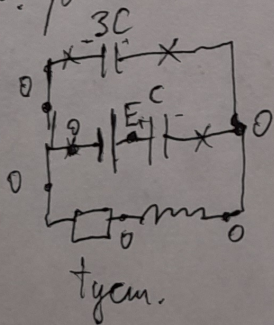 3C
0
E C
0
0
0
0
0
tуст.